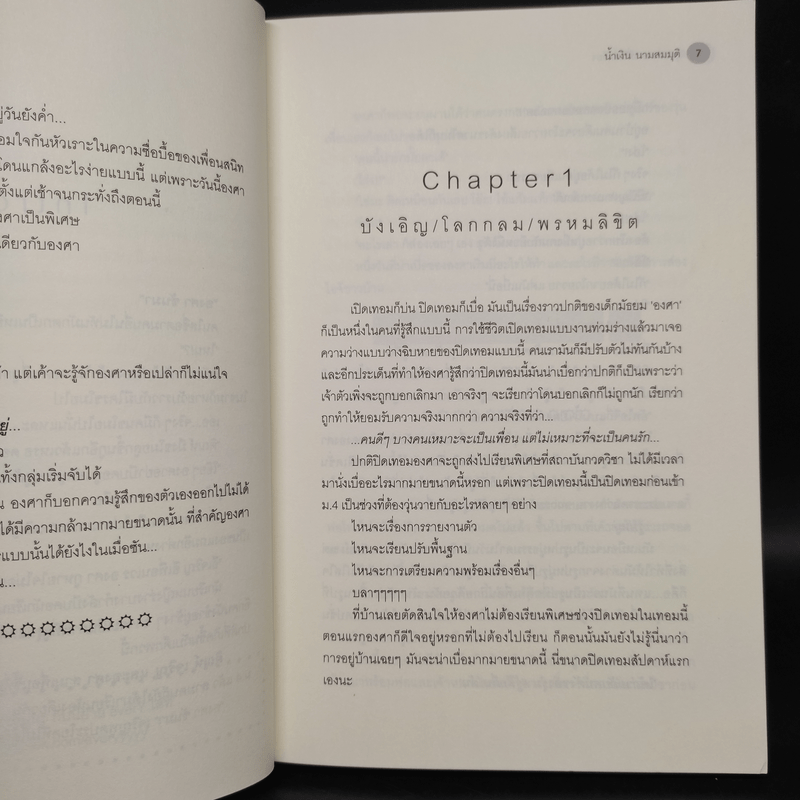 ยู่วันยังค่ำ...
อมใจกันหัวเราะในความซื่อบื้อของเพื่อนสนิท
โดนแกล้งอะไรง่ายแบบนี้ แต่เพราะวันนี้องศา
ตั้งแต่เช้าจนกระทั่งถึงตอนนี้
งศาเป็นพิเศษ
เดียวกับองศา
า แต่เค้าจะรู้จักองศาหรือเปล่าก็ไม่แน่ใจ
ยู่...
ว
ทั้งกลุ่มเริ่มจับได้
น องศาก็บอกความรู้สึกของตัวเองออกไปไม่ได้
ได้มีความกล้ามากมายขนาดนั้น ที่สำคัญองศา
ะแบบนั้นได้ยังไงในเมื่อซัน...
น...
น้ำเงิน นามสมมุติ 7
Chapter1
บังเอิญ/โลกกลม/พรหมลิขิต
เปิดเทอมก็บ่น ปิดเทอมก็เบื่อ มันเป็นเรื่องราวปกติของเด็กมัธยม 'องศา'
ก็เป็นหนึ่งในคนที่รู้สึกแบบนี้ การใช้ชีวิตเปิดเทอมแบบงานท่วมร่างแล้วมาเจอ
ความว่างแบบว่างฉิบหายของปิดเทอมแบบนี้ คนเรามันก็มีปรับตัวไม่ทันกันบ้าง
และอีกประเด็นที่ทำให้องศารู้สึกว่าปิดเทอมนี้มันน่าเบื่อกว่าปกติก็เป็นเพราะว่า
เจ้าตัวเพิ่งจะถูกบอกเลิกมา เอาจริงๆ จะเรียกว่าโดนบอกเลิกก็ไม่ถูกนัก เรียกว่า
ถูกทำให้ยอมรับความจริงมากกว่า ความจริงที่ว่า...
...คนดีๆ บางคนเหมาะจะเป็นเพื่อน แต่ไม่เหมาะที่จะเป็นคนรัก...
ปกติปิดเทอมองศาจะถูกส่งไปเรียนพิเศษที่สถาบันกวดวิชา ไม่ได้มีเวลา
มานั่งเบื่ออะไรมากมายขนาดนี้หรอก แต่เพราะปิดเทอมนี้เป็นปิดเทอมก่อนเข้า
ม.4 เป็นช่วงที่ต้องวุ่นวายกับอะไรหลายๆ อย่าง
ไหนจะเรื่องการรายงานตัว
ไหนจะเรียนปรับพื้นฐาน
ไหนจะการเตรียมความพร้อมเรื่องอื่นๆ
บลาๆๆๆๆ
ที่บ้านเลยตัดสินใจให้องศาไม่ต้องเรียนพิเศษช่วงปิดเทอมในเทอมนี้
ตอนแรกองศาก็ดีใจอยู่หรอกที่ไม่ต้องไปเรียน ก็ตอนนั้นมันยังไม่รู้นี่นาว่า
การอยู่บ้านเฉยๆ มันจะน่าเบื่อมากมายขนาดนี้ นี่ขนาดปิดเทอมสัปดาห์แรก
เองนะ